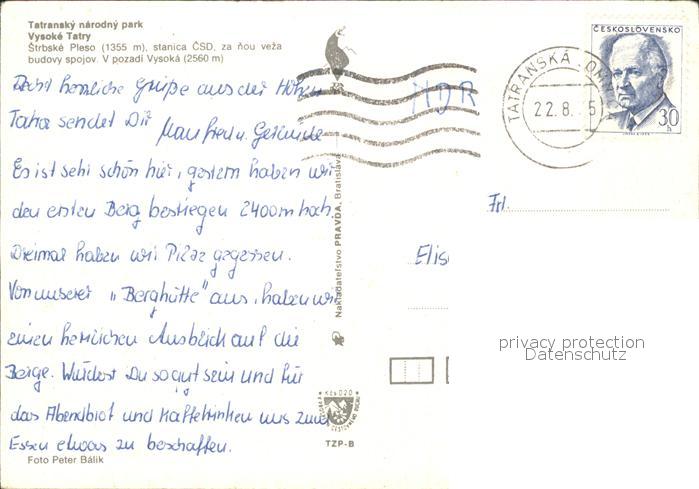 Tatranský národný park
Vysoké Tatry
Štrbské Pleso (1355 m), stanica ČSD, za ňou veža
budovy spojov. V pozadí Vysoká (2560 m)
Recht herzliche Grüße aus der Hohen
Tatra sendet Dir Manfred u. Gerlinde
Es ist sehr schön hier, gestern haben wir
den ersten Berg bestiegen 2400m hoch.
Dreimal haben wir Pilze gegessen.
Von unserer „Berghütte" aus, haben wir
einen herrlichen Ausblick auf die
Berge. Würdest Du so gut sein und für
das Abendbrot und Kaffetrinken uns zum
Essen etwas zu beschaffen.
Foto Peter Bálik
Nakladateľstvo PRAVDA, Bratislava
Kčs 0.20
TZP-B
DDR
TATRANSKÁ
22.8. 5
ČESKOSLOVENSKO
30
h
Frl.
Elis
privacy protection
Datenschutz